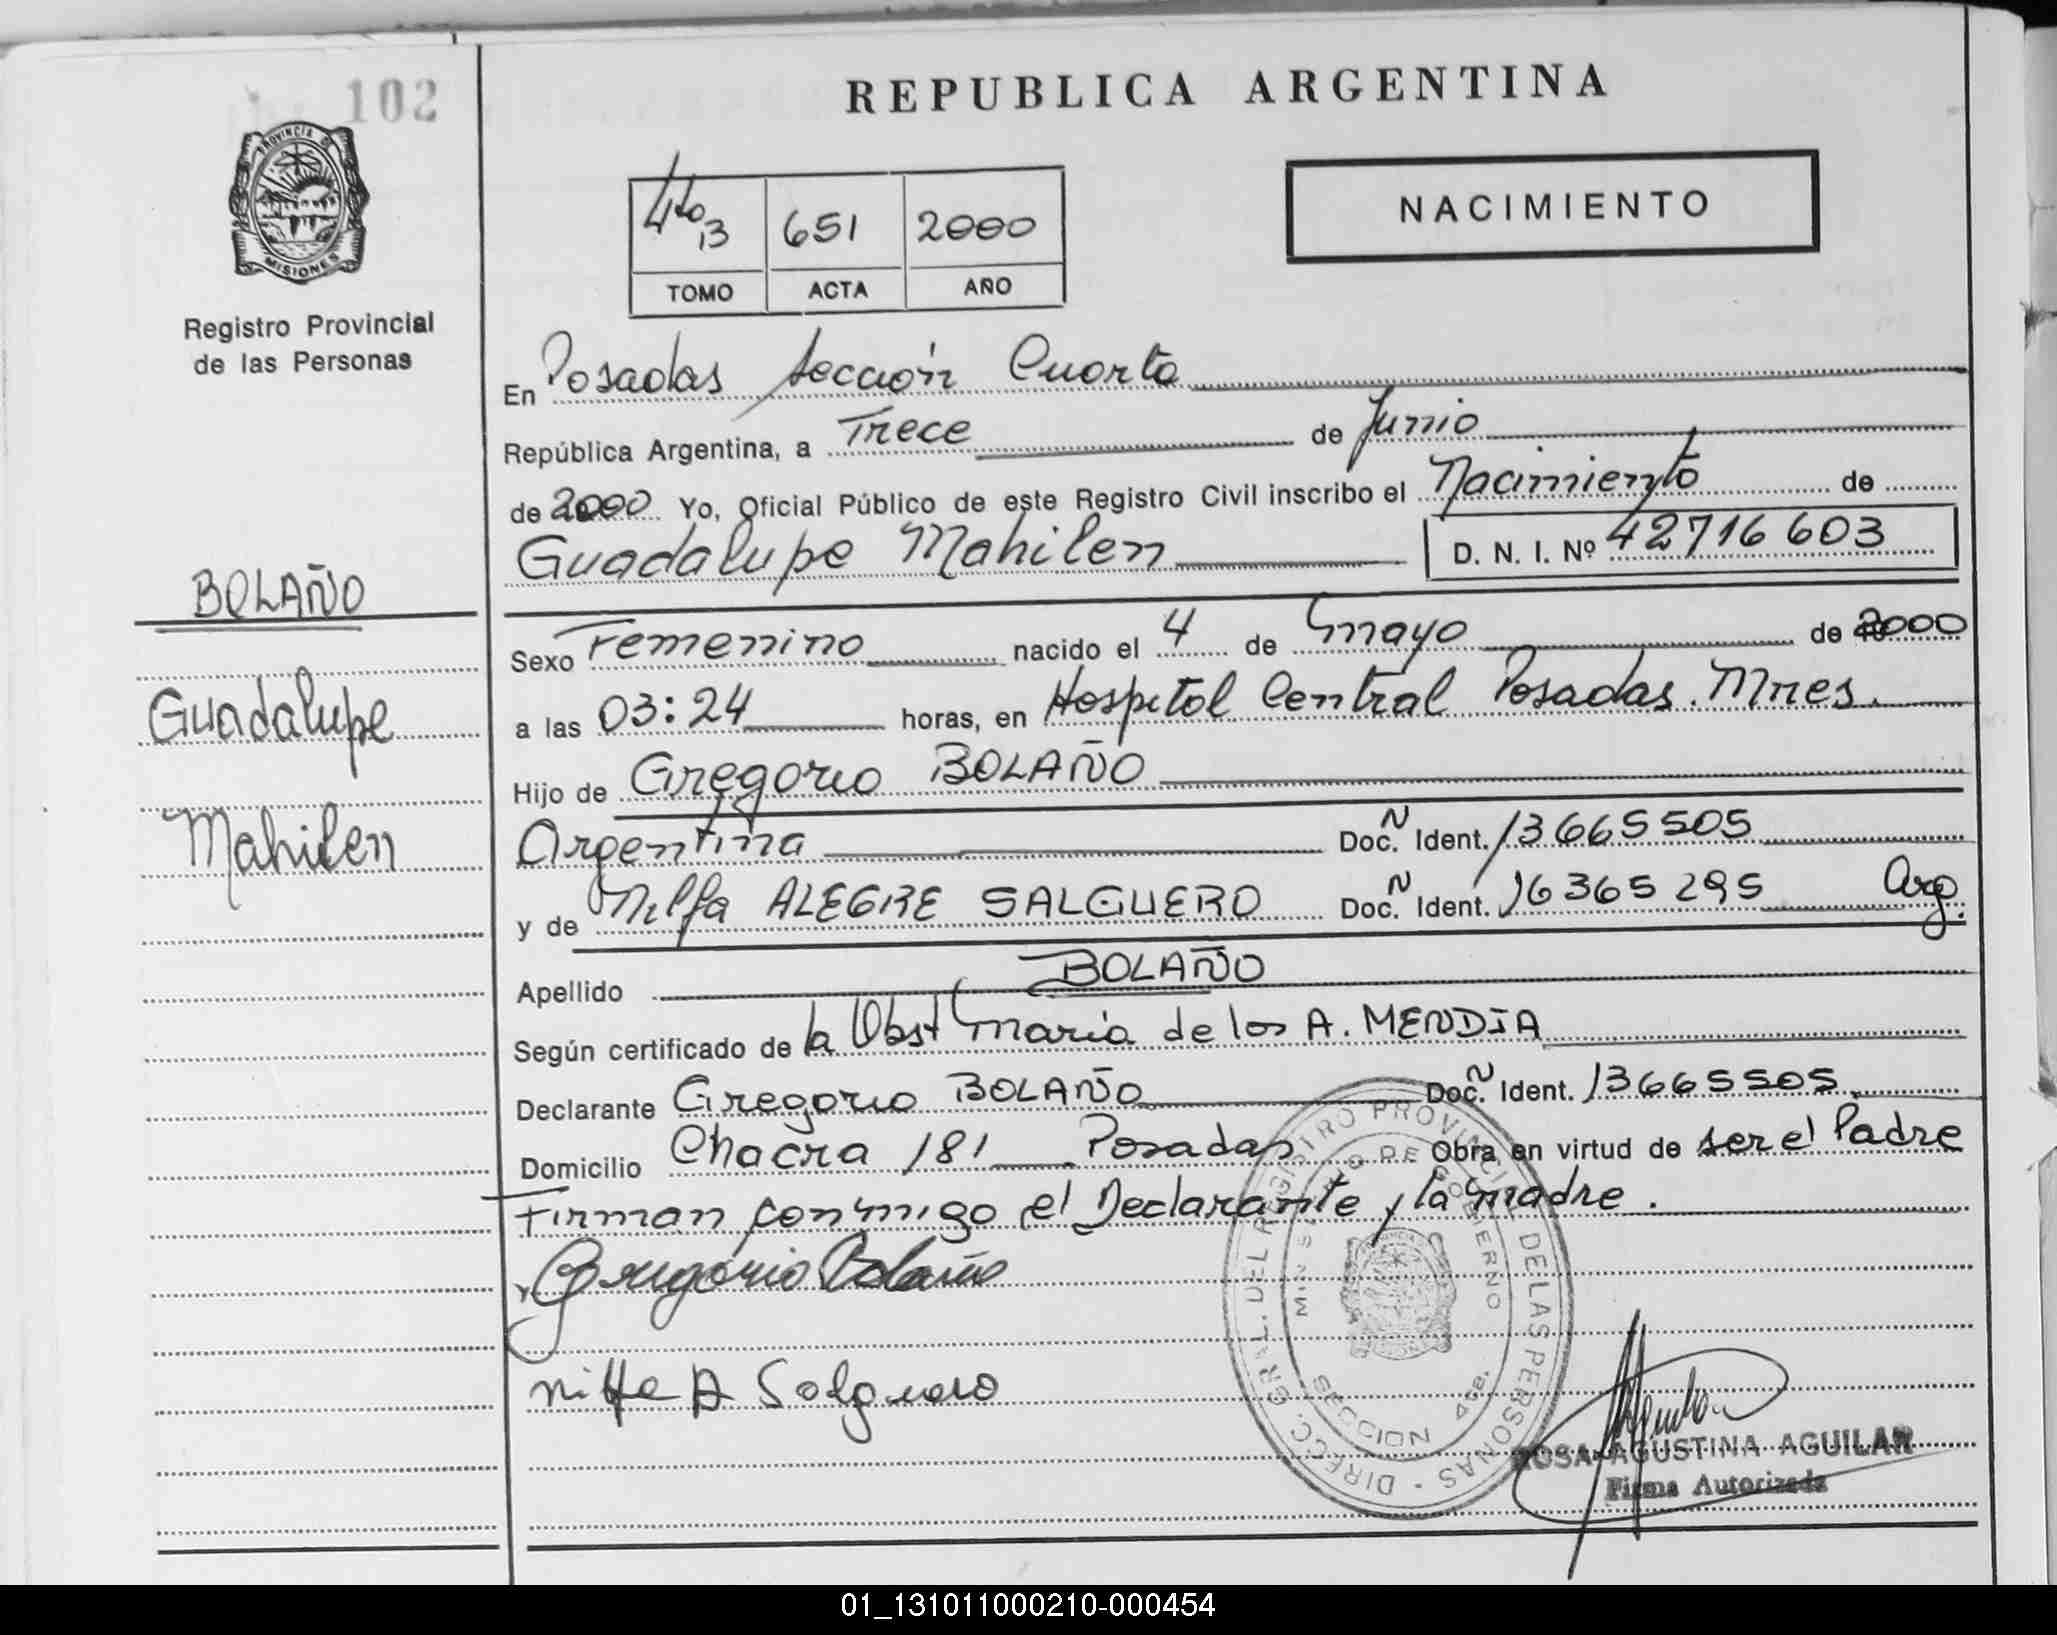 102
REPUBLICA ARGENTINA
PROVINCIA DE
MISIONES
Registro Provincial
de las Personas
4to 13 651 2000
TOMO ACTA AÑO
NACIMIENTO
En Posadas Sección Cuarta
República Argentina, a Trece de Junio
de 2000 Yo, Oficial Público de este Registro Civil inscribo el Nacimiento de
Guadalupe Mahilen D. N. I. Nº 42716603
BOLAÑO
Guadalupe
Mahilen
Sexo Femenino nacido el 4 de mayo de 2000
a las 03:24 horas, en Hospital Central Posadas. Mnes.
Hijo de Gregorio BOLAÑO
Argentina Doc. N Ident. 13665505
y de Nilfa ALEGRE SALGUERO Doc. N Ident. 16365295 Arg.
Apellido BOLAÑO
Según certificado de la Obst María de los A. MENDIA
Declarante Gregorio BOLAÑO Doc. N Ident. 13665505
Domicilio Chacra 181 Posadas Obra en virtud de ser el Padre
Firman conmigo el Declarante y la madre.
Gregorio Bolaño
Nilfa A Salguero
DIRECC. GRAL. DEL REGISTRO PROVINCIAL DE LAS PERSONAS
MINISTERIO DE GOBIERNO
SECCION 4ta.
ROSA AGUSTINA AGUILAR
Firma Autorizada
01_131011000210-000454